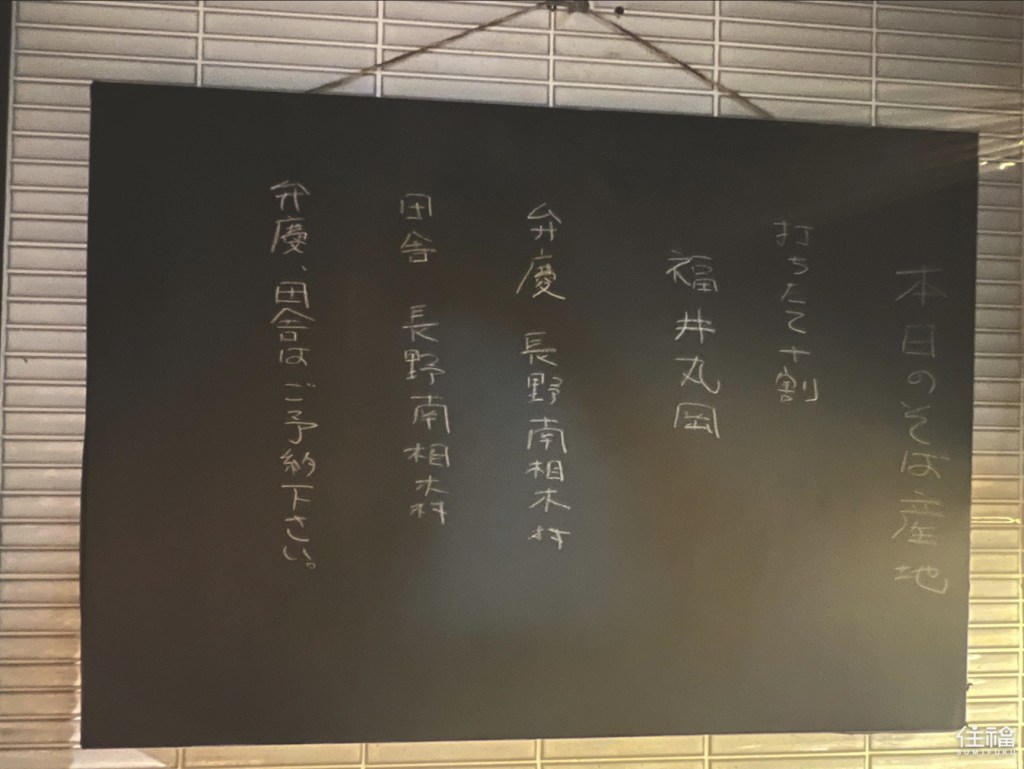 本日のそば産地
打ちたて十割
福井丸岡
弁慶 長野南相木村
田舎 長野南相木村
弁慶、田舎はご予約下さい。
住福
SUMIFUKU